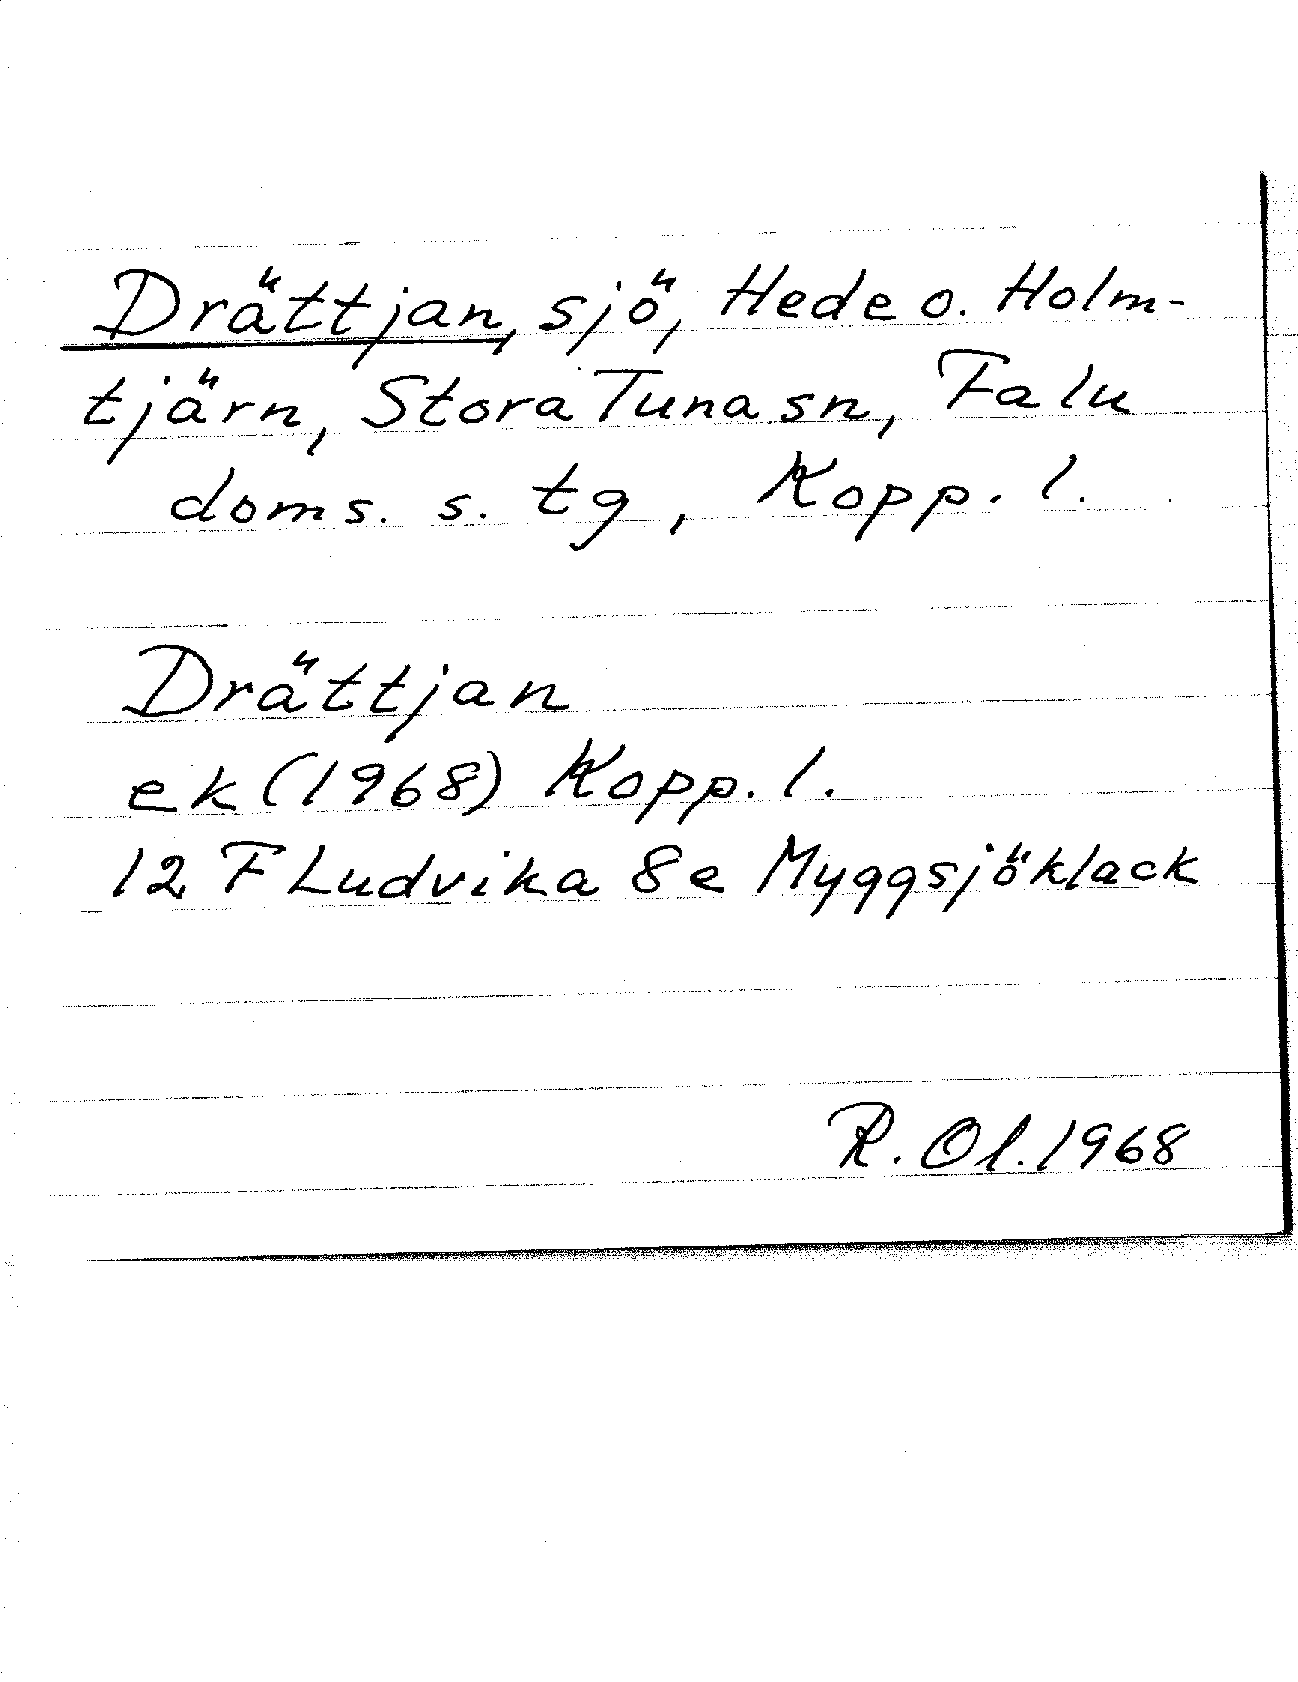 Drättjan, sjö, Hede o. Holm-
tjärn, Stora Tuna sn, Falu
doms. s. tg, Kopp. l.
Drättjan
ek (1968) Kopp. l.
12 F Ludvika 8e Myggsjöklack
R. Ol. 1968